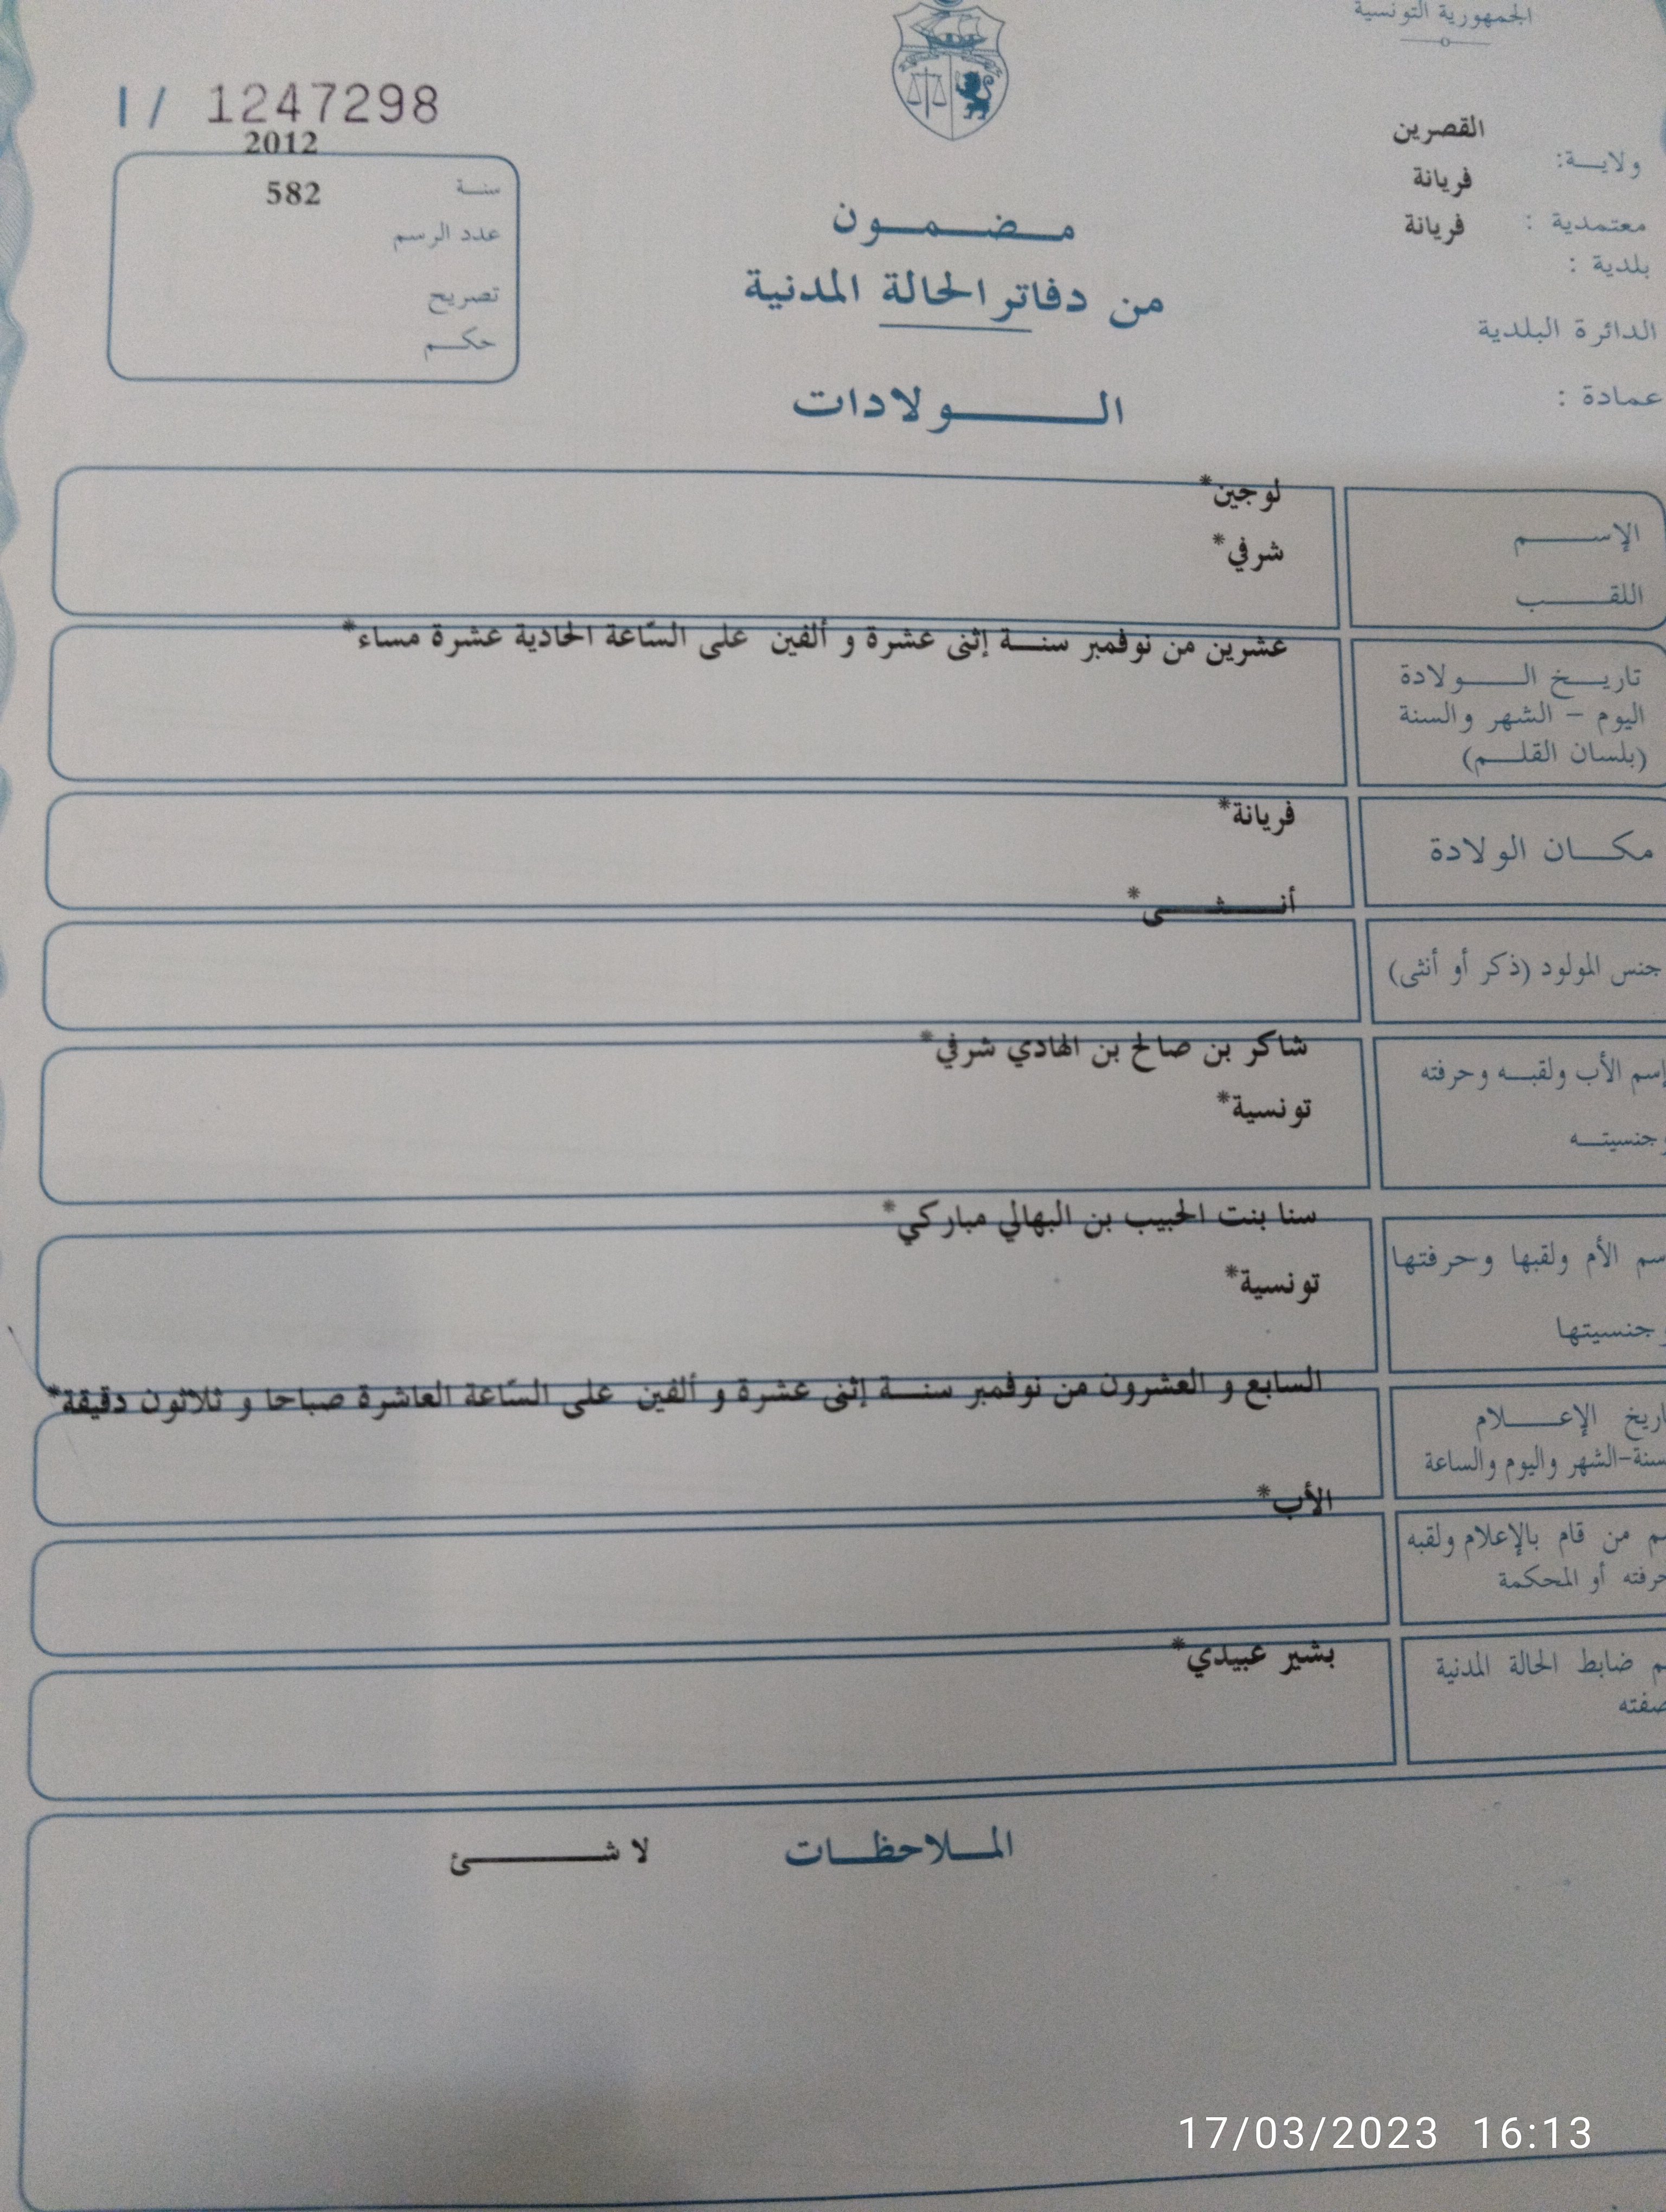 الجمهورية التونسية
I/ 1247298
القصرين
ولايــة:
فريانة
معتمدية :
فريانة
بلدية :
الدائرة البلدية
عمادة :
2012
سنـة
582
عدد الرسم
تصريح
حكـم
مـضـمـون
من دفاتر الحالة المدنية
الـولادات
الإســم
لوجين*
اللقـب
شرفي*
تاريـخ الـولادة
اليوم – الشهر والسنة
(بلسان القلـم)
عشرين من نوفمبر سنـة إثنى عشرة و ألفين على السّاعة الحادية عشرة مساء*
مكـان الولادة
فريانة*
جنس المولود (ذكر أو أنثى)
أنـثـى*
إسم الأب ولقبـه وحرفته
وجنسيتـه
شاكر بن صالح بن الهادي شرفي*
تونسية*
سم الأم ولقبها وحرفتها
وجنسيتها
سنا بنت الحبيب بن البهالي مباركي*
تونسية*
اريخ الإعـلام
سنة-الشهر واليوم والساعة
السابع و العشرون من نوفمبر سنـة إثنى عشرة و ألفين على السّاعة العاشرة صباحا و ثلاثون دقيقة*
ـم من قام بالإعلام ولقبه
حرفته أو المحكمة
الأب*
ـم ضابط الحالة المدنية
صفته
بشير عبيدي*
المـلاحظـات
لا شـئ
17/03/2023 16:13